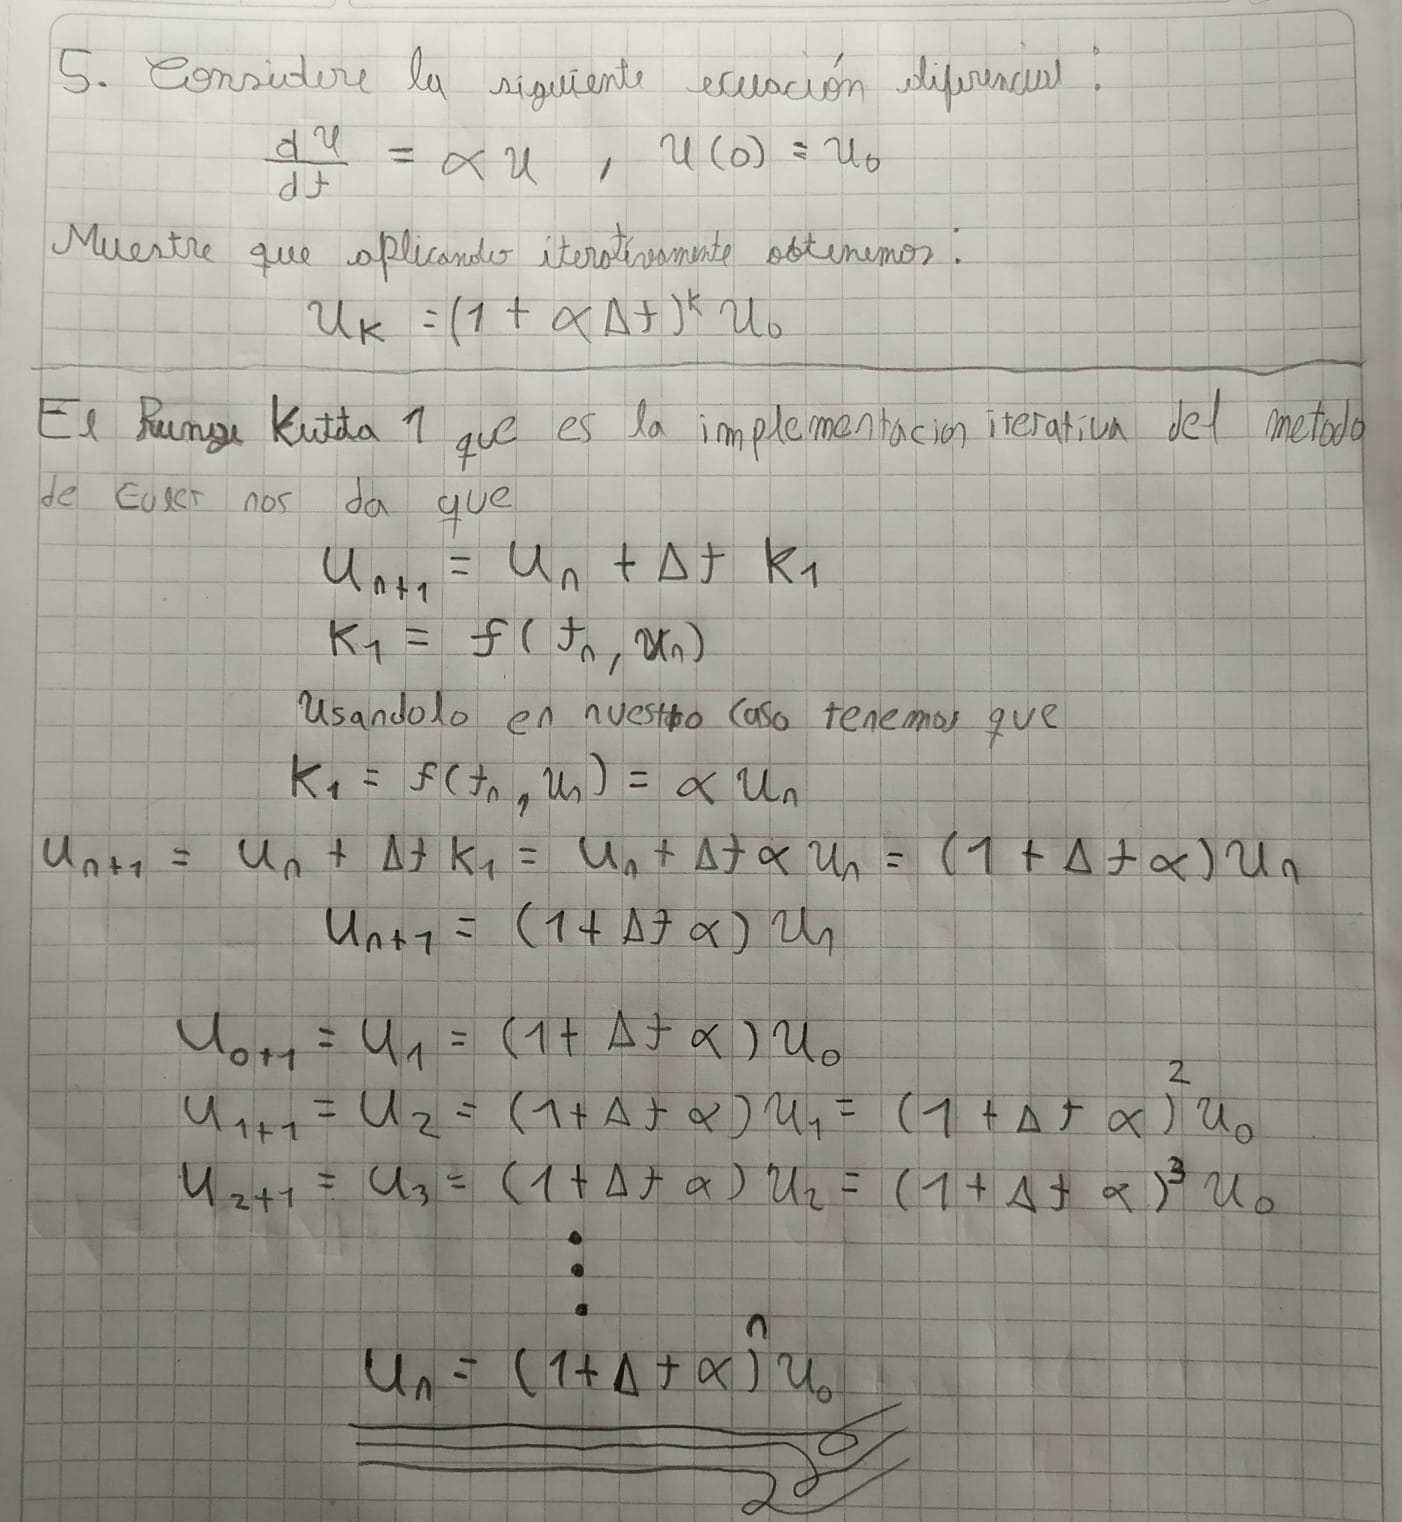 5. Considere la siguiente ecuación diferencial:
du/dt = αu , u(0) = u₀
Muestre que aplicando iterativamente obtenemos:
u_K = (1 + αΔt)^k u₀
El Runge Kutta 1 que es la implementacion iterativa del metodo
de Euler nos da que
u_{n+1} = u_n + Δt K₁
K₁ = f(t_n, u_n)
Usandolo en nuestro caso tenemos que
K₁ = f(t_n, u_n) = α u_n
u_{n+1} = u_n + Δt K₁ = u_n + Δt α u_n = (1 + Δt α) u_n
u_{n+1} = (1 + Δt α) u_n
u_{0+1} = u₁ = (1 + Δt α) u₀
u_{1+1} = u₂ = (1 + Δt α) u₁ = (1 + Δt α)² u₀
u_{2+1} = u₃ = (1 + Δt α) u₂ = (1 + Δt α)³ u₀
⋮
u_n = (1 + Δt α)^n u₀